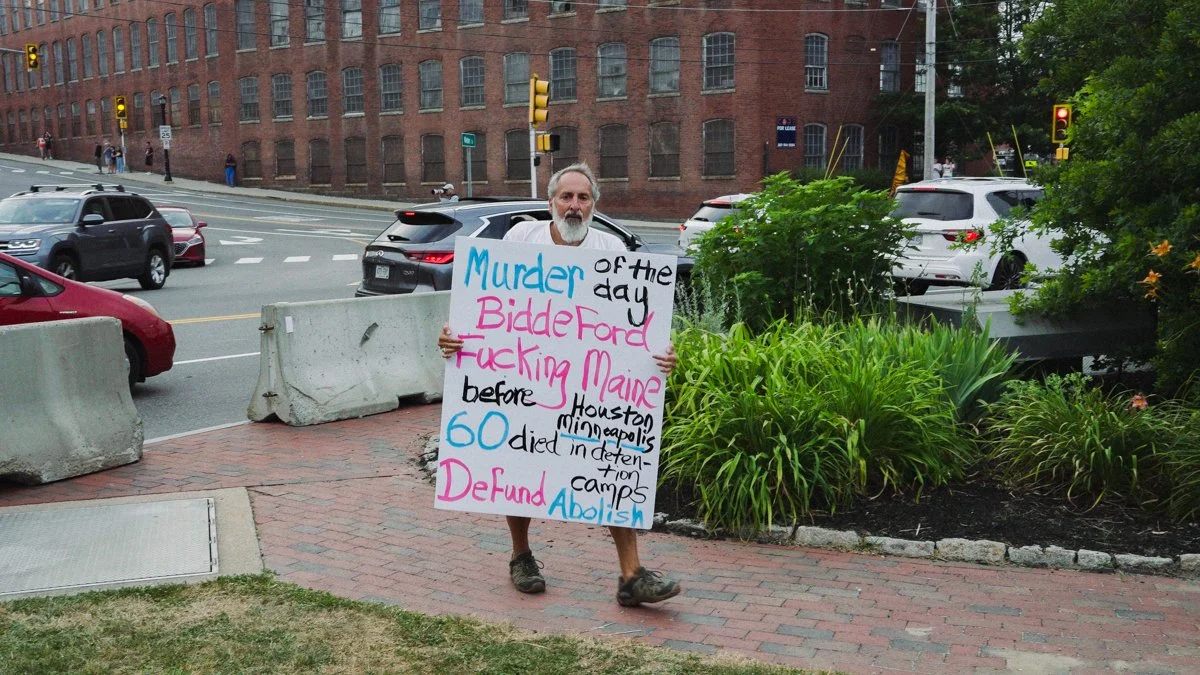 Murder of the day
Biddeford
Fucking Maine
before Houston
Minneapolis
60 died in deten-
tion
camps
Defund Abolish
FOR LEASE
25